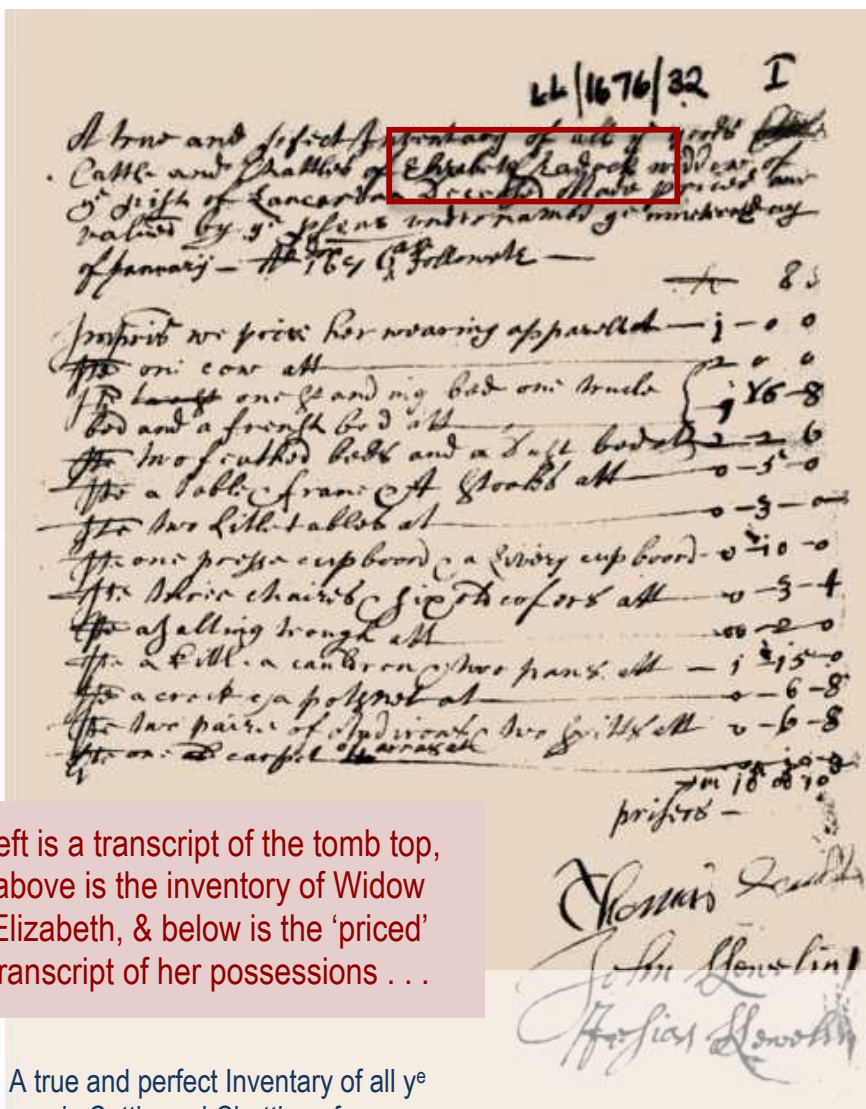 LL/1676/32 I
A true and pfect Inventory of all ye goods
Cattle and Chattles of Elizabeth widdow of
ye pish of Deceased Made priced and
valued by ye psons undernamed ye nineteenth day
of January – followeth —
s
Impris we prize her wearing apparell at — j – 0 0
Ite one cow att 2 0 0
Ite one standing bed one truckle
bed and a french bed att j 16 – 8
Ite two feathed beds and a dust bed att 2 – 2 6
Ite a table frame & stooles att 0 – 5 – 0
Ite two little tables at 0 – 3 – 0
Ite one presse cupboord & a livery cupboord – 0 – 10 – 0
Ite three chaires & six cofers att 0 – 3 – 4
Ite a salting trough att 00 – 2 0
Ite a kittle a cauldron & two pans att — j – 15 – 0
Ite a crock & a potsnet at 0 – 6 – 8
Ite two paire of Andirons & two spitts att 0 – 6 – 8
Ite one carpet
prisers –
Thomas
John Llewelin
Llewelin
eft is a transcript of the tomb top,
above is the inventory of Widow
Elizabeth, & below is the ‘priced’
ranscript of her possessions . . .
A true and perfect Inventory of all yᵉ